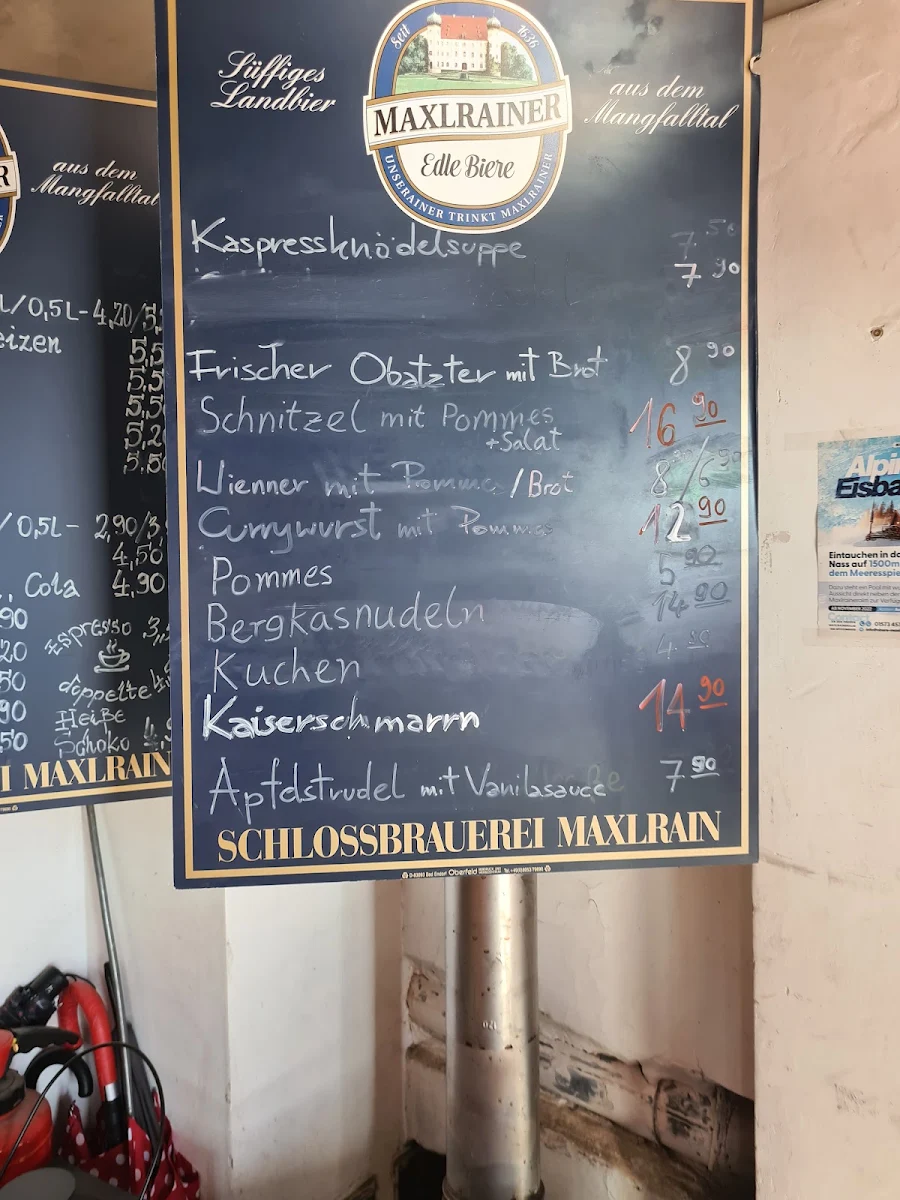 aus dem
Mangfalltal
L/0,5L- 4,20/5,
eizen
5,5
5,5
5,50
5,20
5,50
/ 0,5L- 2,90/3,
4,50
Cola 4,90
90
20 Espresso 3,
50 doppelte 4,
90 Heiße
50 Schoko 4,
I MAXLRAIN
Süffiges
Landbier
Seit 1636
MAXLRAINER
Edle Biere
UNSERAINER TRINKT MAXLRAINER
aus dem
Mangfalltal
Kaspressknödelsuppe 7,50
7 90
Frischer Obatzter mit Brot 8 90
Schnitzel mit Pommes 16 90
+Salat
Wienner mit Pommes/Brot 8 90/6 90
Currywurst mit Pommes 12 90
Pommes 5 90
Bergkasnudeln 14 90
Kuchen 4 90
Kaiserschmarrn 14 90
Apfelstrudel mit Vanilasauce 7 90
SCHLOSSBRAUEREI MAXLRAIN
Oberfeld
Alpin
Eisba
Eintauchen in da
Nass auf 1500m
dem Meeresspie